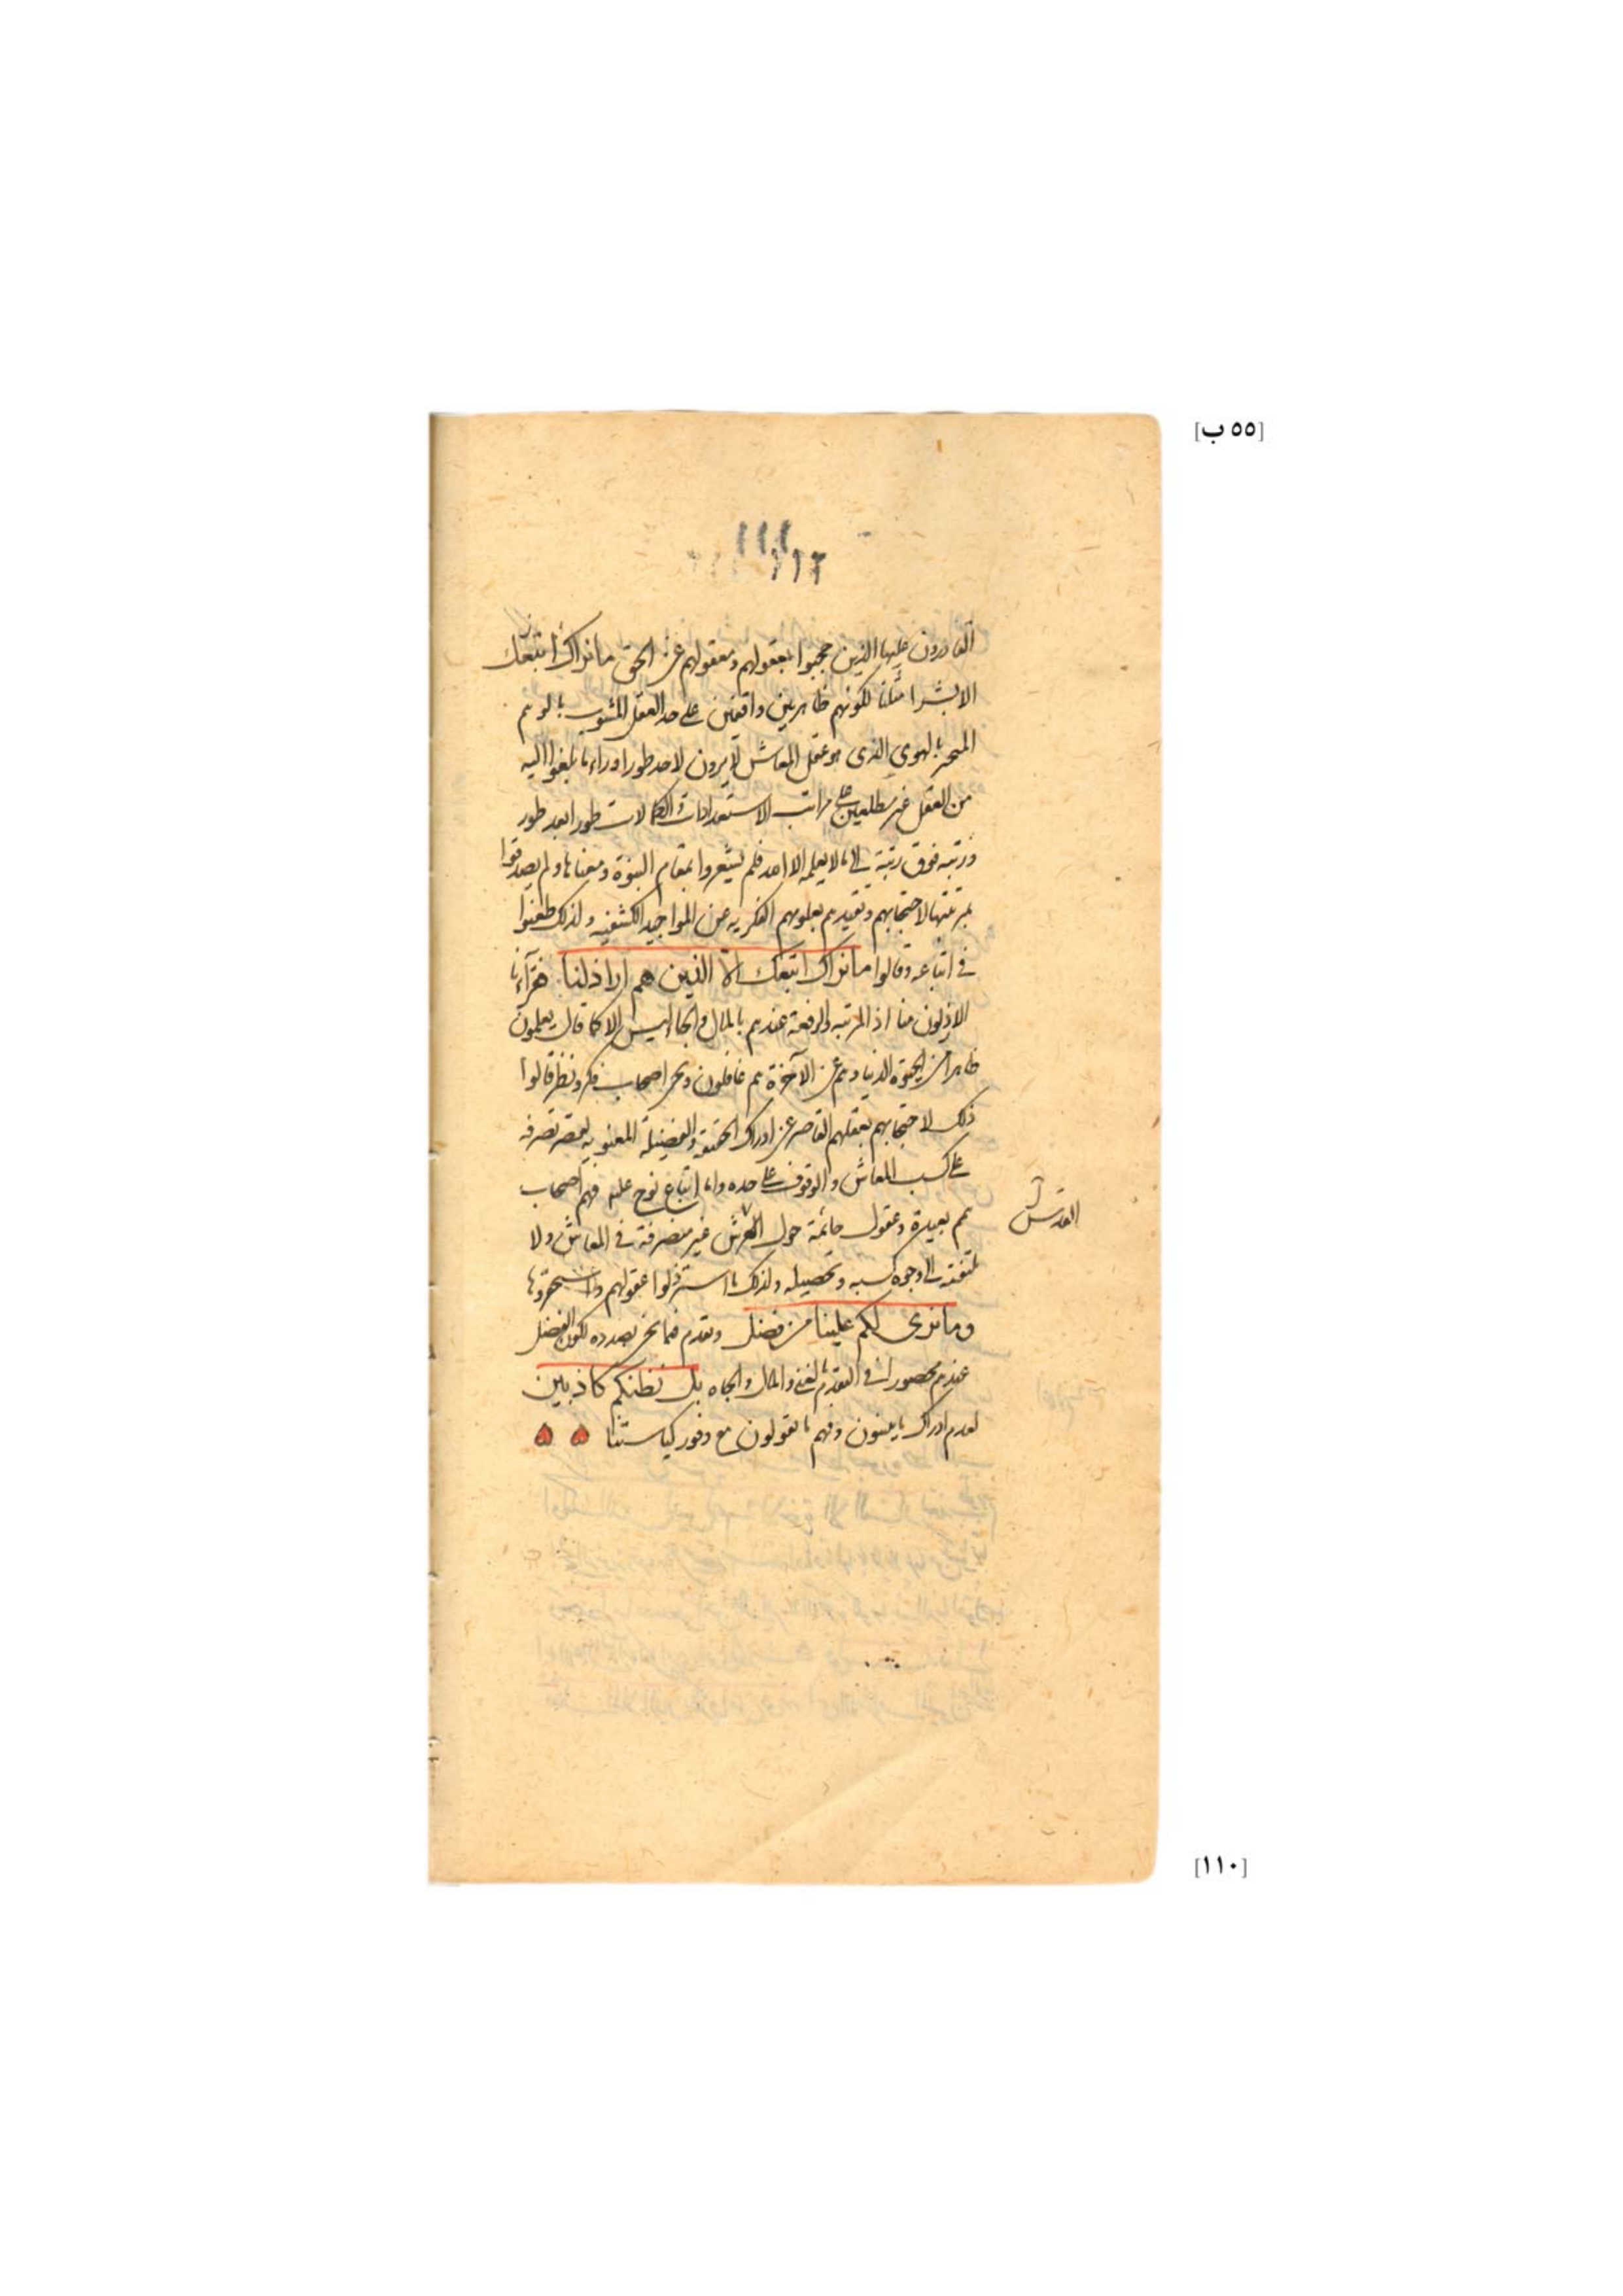 [٥٥ ب]
١١١
١١٢
القادرون عليها الذين حجبوا بعقولهم ومعقولهم عن الحق ما نراك اتبعك
الا بشرا مثلنا لكونهم ظاهريين واقفين على حد العقل المشوب بالوهم
المتحير بالهوى الذى هو عقل المعاش لا يرون لاحد طورا وراء ما بلغوا اليه
من العقل غير مطلعين على مراتب الاستعدادات والكمالات طورا بعد طور
ورتبة فوق رتبة الى ما لا يعلمه الا احد فلم يشعروا بمقام النبوة ومعناها ولم يصدقوا
بمرتبتها لاحتجابهم وتقيدهم بعلومهم الفكريه عن المواجيد الكشفيه ولذلك طعنوا
فى اتباعه وقالوا ما نراك اتبعك الا الذين هم اراذلنا فقرآء نا
الارذلون منا اذ المرتبه والرفعة عندهم بالمال والجاه ليس الا كما قال يعلمون
ظاهرا من الحيوة الدنيا وهم عن الآخرة هم غافلون ونحن اصحاب فكر ونظر قالوا
ذلك لاحتجابهم بعقلهم القاصر عن ادراك الحقيقة والفضيلة المعنويه لقصر تصرفه
على كسب المعاش والوقوف على حده واما اتباع نوح عليه فهم اصحاب
همم بعيدة وعقول حائمة حول العرش غير متصرفة فى المعاش ولا
القدس
ملتفتة الى وجوه كسبه وتحصيله ولذلك ما استرذلوا عقولهم واستحقروها
وما نرى لكم علينا من فضل وتقدم فيما نحن بصدده لكون الفضل
عندهم محصورا فى التقدم بالغنى والمال والجاه بل نظنكم كاذبين
لعدم ادراك ما يعنون وفهم ما تقولون مع وفور كياستنا
[١١٠]